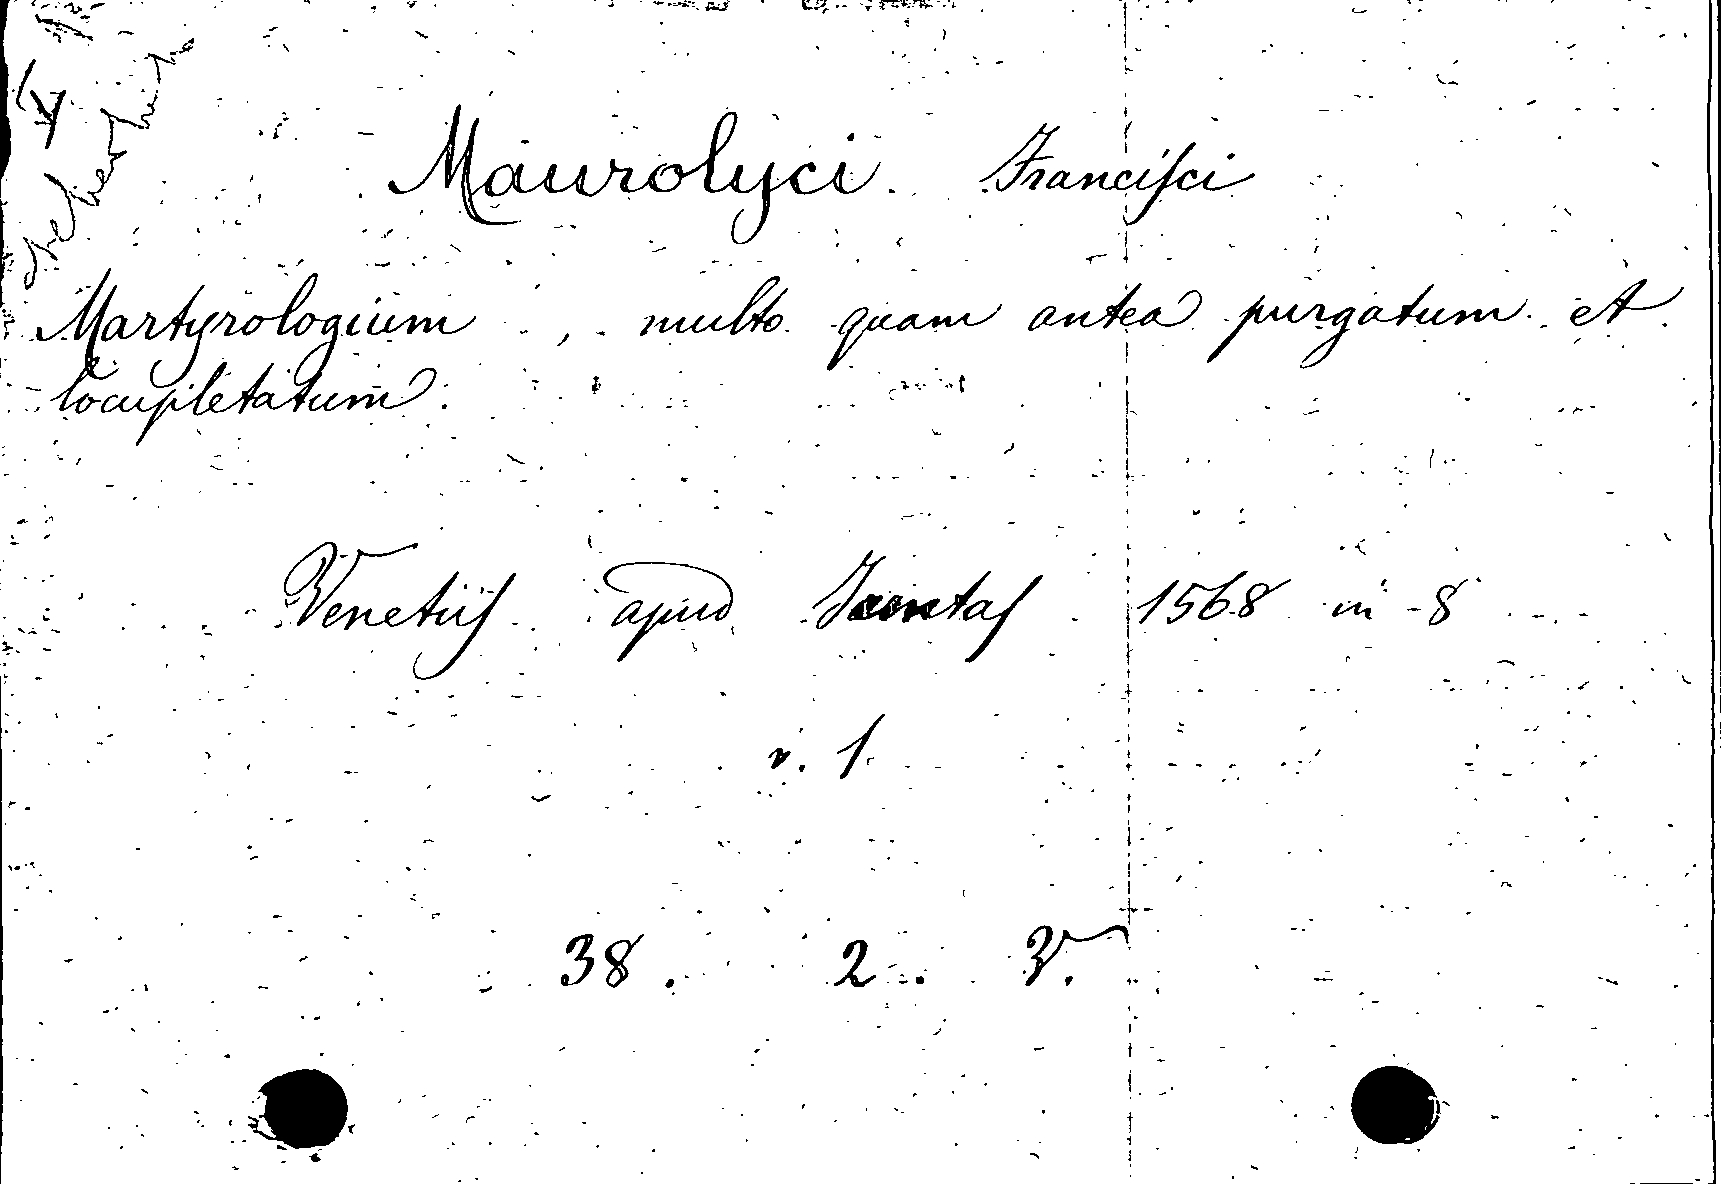 Maurolyci Francisci
Martyrologium, multo quam antea purgatum et
locupletatum.
Venetiis apud Juntas 1568 in 8
v. 1
38. 2. V.